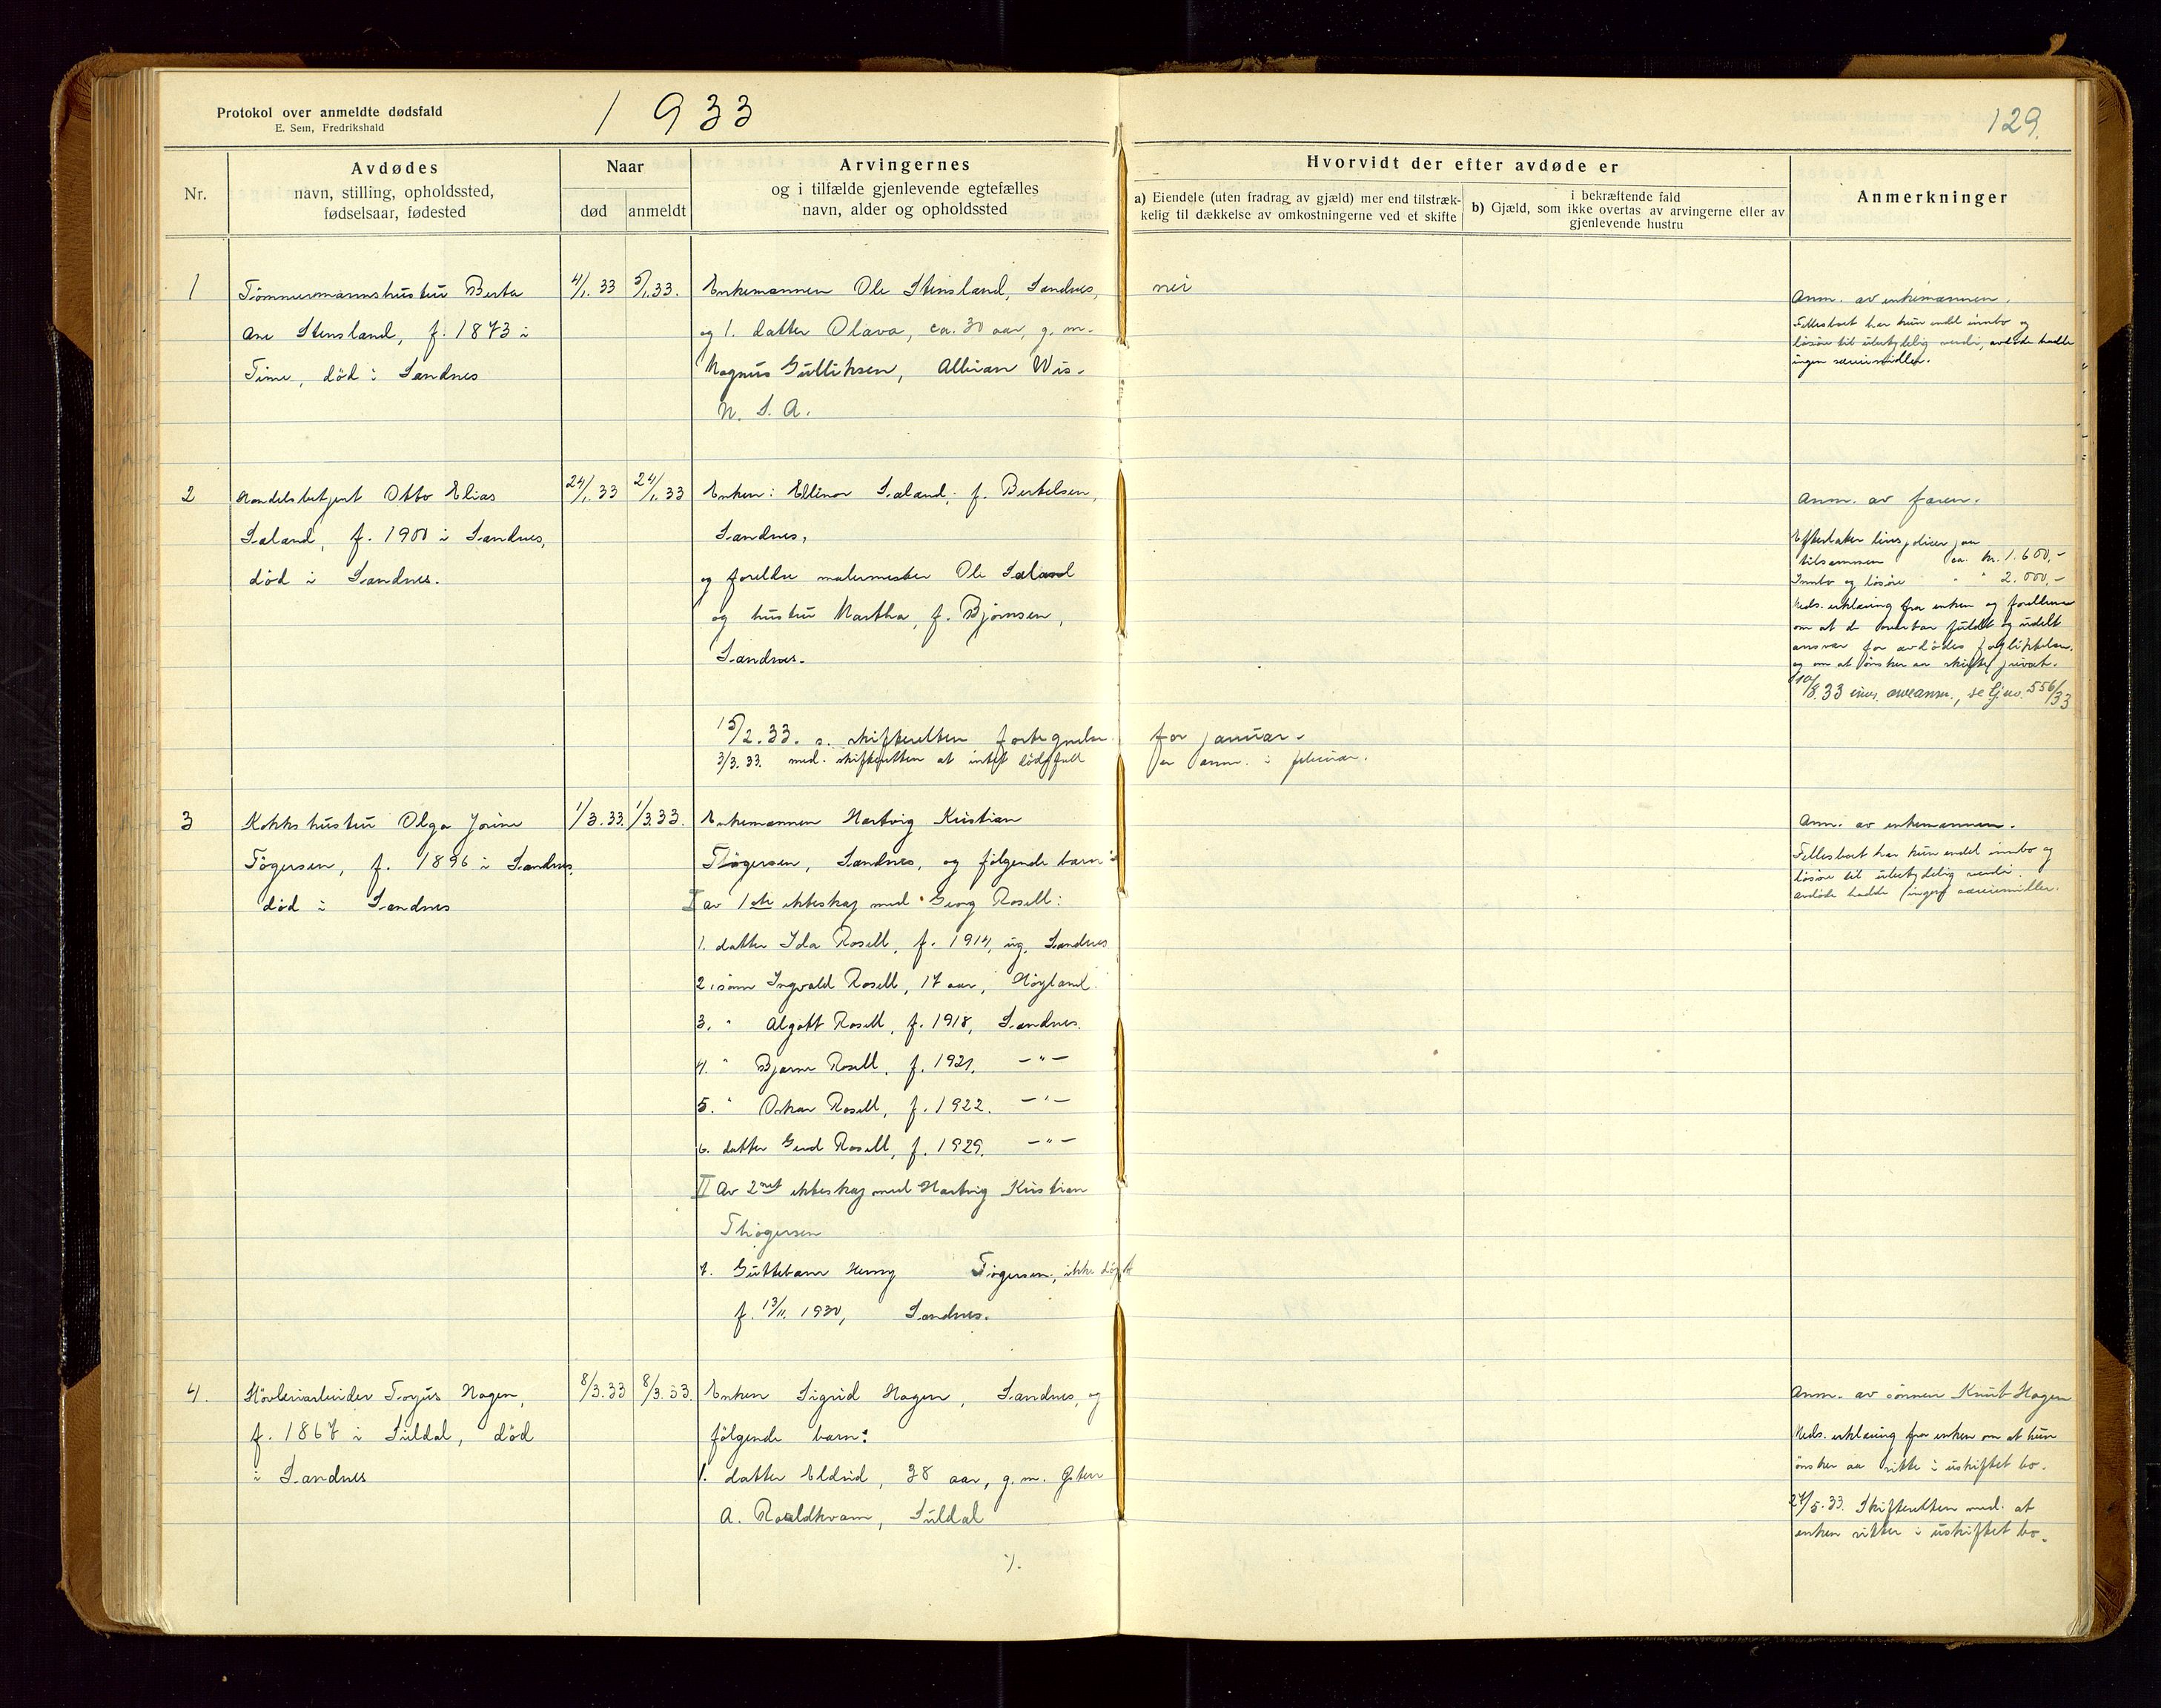 Protokol over anmeldte dødsfald
E. Sem, Fredrikshald
1933
129.
Nr.
Avdødes
navn, stilling, opholdssted,
fødselsaar, fødested
Naar
død
anmeldt
Arvingernes
og i tilfælde gjenlevende egtefælles
navn, alder og opholdssted
Hvorvidt der efter avdøde er
a) Eiendele (uten fradrag av gjæld) mer end tilstræk-
kelig til dækkelse av omkostningerne ved et skifte
i bekræftende fald
b) Gjæld, som ikke overtas av arvingerne eller av
gjenlevende hustru
Anmerkninger
1
Tömmermannshustru Berta
Ane Stensland, f. 1873 i
Time, död i Sandnes
4/1. 33
5/1. 33.
Enkemannen Ole Stensland, Sandnes,
og 1. datter Olava, ca. 30 aar, g. m.
Magnus Gulliksen, Albian Wis.
N. S. A.
nei
Anm. av enkemannen.
Fellesboet har kun endel innbo og
lösöre til ubetydelig verdi, avdöde hadde
ingen særeiemidler.
2
Handelsbetjent Otto Elias
Saland, f. 1900 i Sandnes,
död i Sandnes.
24/1. 33
24/1. 33
Enken: Ellinor Saland, f. Bertelsen,
Sandnes,
og foreldre malermester Ole Saland
og hustru Martha, f. Bjørnsen,
Sandnes.
Anm. av faren.
Efterlater livspoliser paa
tilsammen ca. kr. 1.600,-
Innbo og lösöre " " 2.000,-
Meds. erklæring fra enken og foreldrene
om at de overtar fuldt og udelt
ansvar for avdödes forpliktelser.
og om at önsker aa skifte privat.
10/8.33 inns. arveanm., se Gjen. 556/33
15/2. 33. s. skifteretten fortegnelse for januar.
3/3. 33. med. skifteretten at intet dödsfall er anm. i februar.
3
Kokkshustru Olga Jorine
Tögersen, f. 1896 i Sandnes,
död i Sandnes
1/3. 33.
1/3. 33.
Enkemannen Hartvig Kristian
Thögersen, Sandnes, og fölgende barn:
I av 1ste ekteskap med Georg Rosell:
1. datter Ida Rosell, f. 1914, ug. Sandnes
2. sönn Ingvald Rosell, 17 aar, Höyland.
3. " Algott Rosell, f. 1918, Sandnes.
4. " Bjarne Rosell, f. 1921. -"-
5. " Oskar Rosell, f. 1922. -"-
6. datter Gerd Rosell, f. 1929. -"-
II Av 2net ekteskap med Hartvig Kristian
Thögersen
7. Guttebarn Henry Tögersen, ikke döpt
f. 13/11. 1930, Sandnes.
Anm. av enkemannen.
Fellesboet har kun endel innbo og
lösöre til ubetydelig verdi.
avdöde hadde ingen særeiemidler.
4.
Hövleriarbeider Torjus Hagen,
f. 1867 i Suldal, död
i Sandnes
8/3. 33
8/3. 33.
Enken Sigrid Hagen, Sandnes, og
fölgende barn:
1. datter Eldrid, 38 aar, g. m.
A. Roaldkvam, Suldal
%.
Anm. av sönnen Knut Hagen
Meds. erklæring fra enken om at hun
önsker aa sitte i uskiftet bo.
27/5. 33. Skifteretten med. at
enken sitter i uskiftet bo.